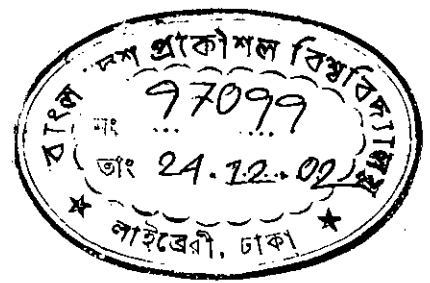 বাংলাদেশ প্রকৌশল বিশ্ববিদ্যালয়
নং 97099
তাং 24.12.02
লাইব্রেরী, ঢাকা